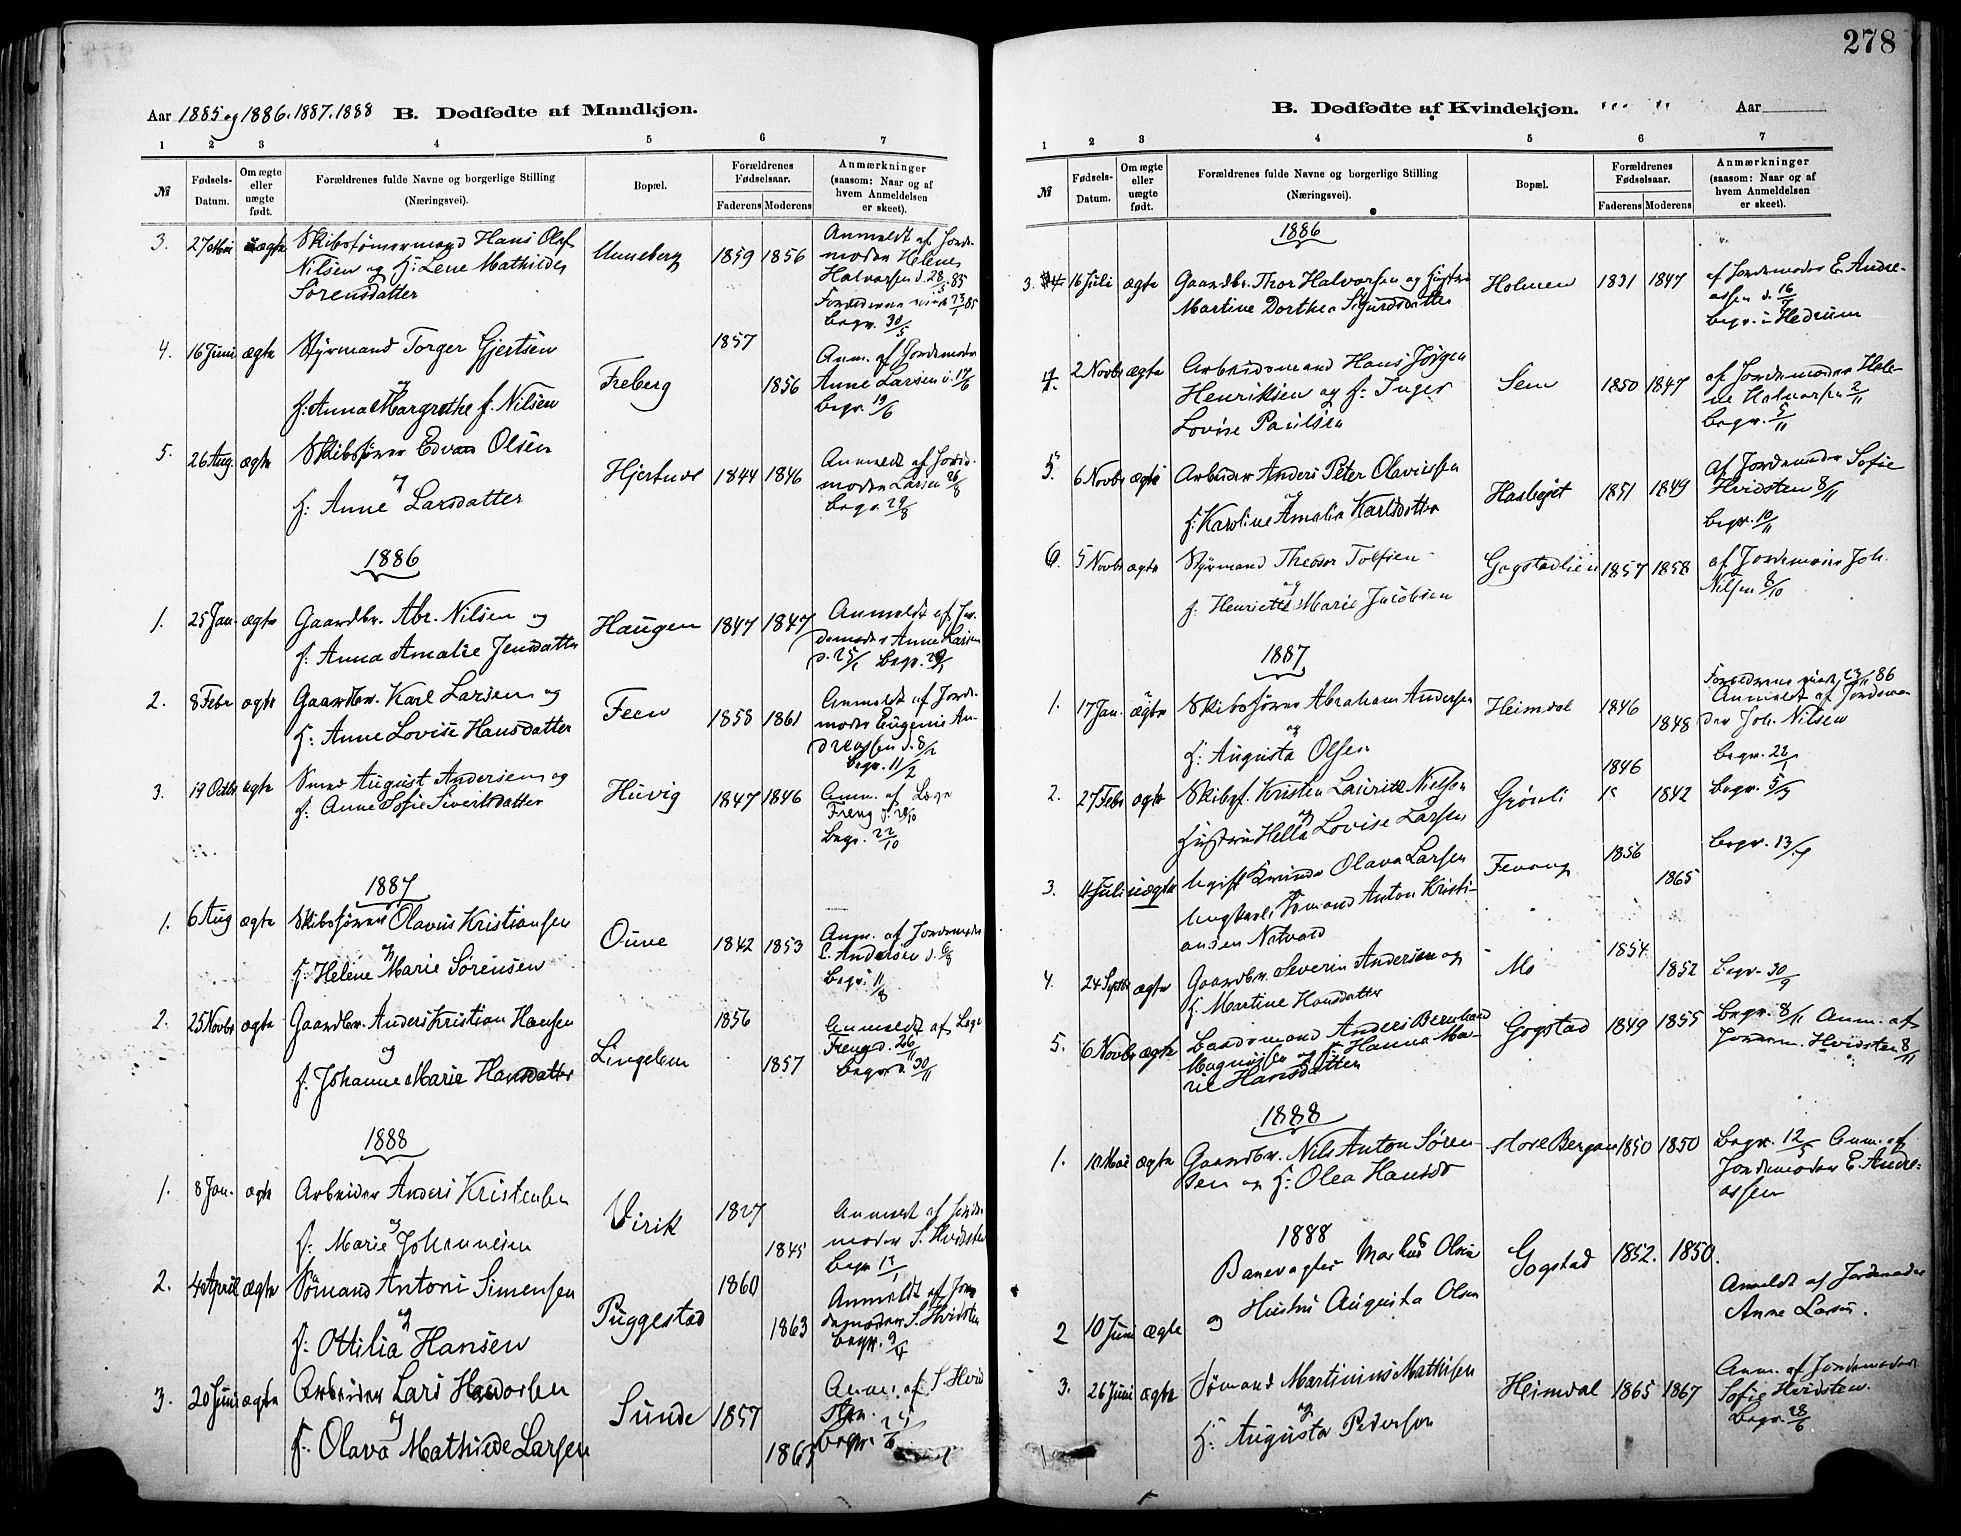 278
Aar 1885 og 1886. 1887. 1888 B. Dødfødte af Mandkjøn.
1 2 3 4 5 6 7
№ Fødsels-Datum. Om ægte eller uægte født. Forældrenes fulde Navne og borgerlige Stilling (Næringsvei). Bopæl. Forældrenes Fødselsaar. Faderens Moderens Anmærkninger (saasom: Naar og af hvem Anmeldelsen er skeet).
3. 27 Mai ægte Skibstømmermand Hans Olaf Unneberg 1859 1856 Anmeldt af Jorde-
Nilsen og H: Lene Mathilde moder Helene
Sørensdatter Halvorsen d. 28/5 85
Begr. 30/5
4. 16 Juni ægte Styrmand Torger Gjertsen Freberg 1857 1856 Anm. af Jordemoder
og Anne Larsen d. 17/6
H: Anna Margrethe f. Nilsen Begr. 19/6
5. 26 Aug. ægte Skibsfører Edvard Olsen Hjertnes 1844 1846 Anmeldt af Jorde-
og moder Larsen 26/8
H: Anne Larsdatter Begr. 29/8
1886
1. 25 Jan. ægte Gaardbr. Abr. Nilsen og Haugen 1847 1847 Anmeldt af Jor-
H: Anna Amalie Jensdatter demoder Anne Larsen
d. 25/1 Begr.
2. 8 Febr ægte Gaardbr. Karl Larsen og Feen 1858 1861 Anmeldt af Jorde-
H: Anne Lovise Hansdatter moder Eugenie An-
dreassen d. 8/2
Begr. 11/2
3. 19 Octbr ægte Smed August Andersen og Huvig 1847 1846 Anm. af Læge
H: Anne Sofie Sivertsdatter Freng d. 20/10
Begr. 22/10
1887
1. 6 Aug ægte Skibsfører Olavus Kristiansen Ouve 1842 1853 Anm. af Jordemoder
og E. Andersen d. 6/8
H: Helene Marie Sørensen Begr. 11/8
2. 25 Novbr ægte Gaardbr. Anders Kristian Hansen Lingelem 1856 1857 Anmeldt af Læge
og Freng d. 26/11
H: Johanne Marie Hansdatter Begr. d. 30/11
1888
1. 8 Jan. ægte Arbeider Anders Kristensen Virik 1827 1845 Anmeldt af Jorde-
og moder S. Hvidsten
H: Marie Johannesen Begr 13/1
2. 4 April ægte Sømand Antoni Simensen Puggestad 1860 1863 Anmeldt af Jor-
og demoder S. Hvidsten
H: Ottilia Hansen Begr. 9/4
3. 20 Juni ægte Arbeider Lars Sunde 1857 1865 Anm. af S. Hvid
og sten.
H: Olava Mathilde Larsen Begr.
B. Dødfødte af Kvindekjøn. Aar
1 2 3 4 5 6 7
№ Fødsels-Datum. Om ægte eller uægte født. Forældrenes fulde Navne og borgerlige Stilling (Næringsvei). Bopæl. Forældrenes Fødselsaar. Faderens Moderens Anmærkninger (saasom: Naar og af hvem Anmeldelsen er skeet).
1886
3. 16 Juli ægte Gaardbr. Thor Halvorsen og Hustru Holmen 1831 1847 af Jordemoder E. Andre-
Martine Dorthea Sigurdsdatter assen d. 16/7
Begr. i Hedrum
4. 2 Novbr ægte Arbeidsmand Hans Jørgen Sem 1850 1847 af Jordemoder Hele-
Henriksen og H: Inger ne Halvorsen 2/11
Lovise Paulsen Begr. 5/11
5. 6 Novbr ægte Arbeider Anders Peter Olaviussen Haslejet 1851 1849 af Jordemoder Sofie
og Hvidsten 8/11
H: Karoline Amalia Karlsdatter Begr. 10/11
6. 5 Novbr ægte Styrmand Theodor Tolfsen Gogstadlien 1857 1858 af Jordemoder Joh.
og Nilsen 8/10
H: Henriette Marie Jacobsen
1887
1. 17 Jan. ægte Skibsfører Abraham Andersen Heimdal 1846 1848 Anmeldt af Jordemo-
og der Joh. Nilsen
H: Augusta Olsen Begr. 22/1
2. 27 Febr ægte Skibsf. Kristen Lauritz Nielsen Grønli 1846 1842 Begr. 5/3
og
Hustru Hella Lovise Larsen
3. 4 Juli uægte Ugift Kvinde Olava Larsen Fevang 1856 1865 Begr. 13/7
Ungkarl Sømand Anton Kristi-
ansen Natvald
4. 24 Septbr ægte Gaardbr. Severin Andersen og Mo 1854 1852 Begr. 30/9
H: Martine Hansdatter
5. 6 Novbr ægte Baadsmand Anders Bernhard Gogstad 1849 1855 Begr. 8/11 Anm. af
Magnussen og H: Hanna Ma- Jordem. Hvidsten 8/11
rie Hansdatter
1888
1. 10 Mai ægte Gaardbr. Nils Anton Søren- store Bergan 1850 1850 Begr. 12/5 Anm. af
sen og H: Olea Hansdr Jordemoder E. Andre-
assen
1888
Banevagter Markus Olsen Gogstad 1852. 1850.
og Hustru Augusta Olsen Anmeldt af Jordemoder
2 10 Juni ægte Anne Larsen.
3. 26 Juni ægte Sømand Martinius Mathisen Heimdal 1865 1867 Anm. af Jordemoder
og Sofie Hvidsten.
H: Augusta Pedersen Begr. 28/6